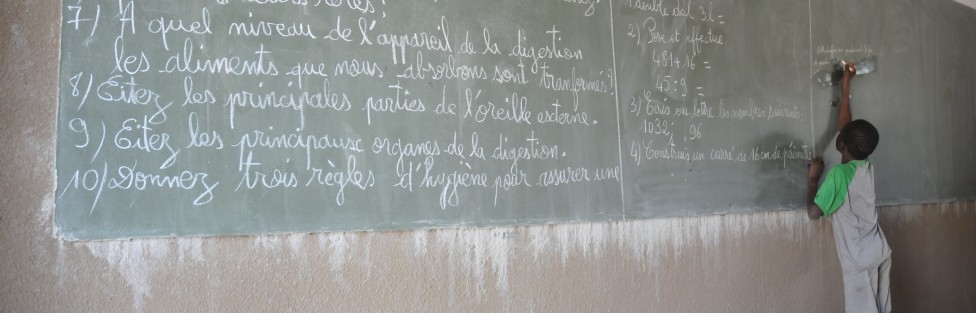 7) A quel niveau de l'appareil de la digestion
les aliments que nous absorbons sont tranformés?
8) Citez les principales parties de l'oreille externe.
9) Citez les principaux organes de la digestion.
10) Donnez trois règles d'hygiène pour assurer une
1 double dal 3l =
2) Pose et effectue.
481+16 =
45:9 =
3) Ecris en lettre les nombres suivants:
1032; 96
4) Construis un carré de 16cm de périmètre